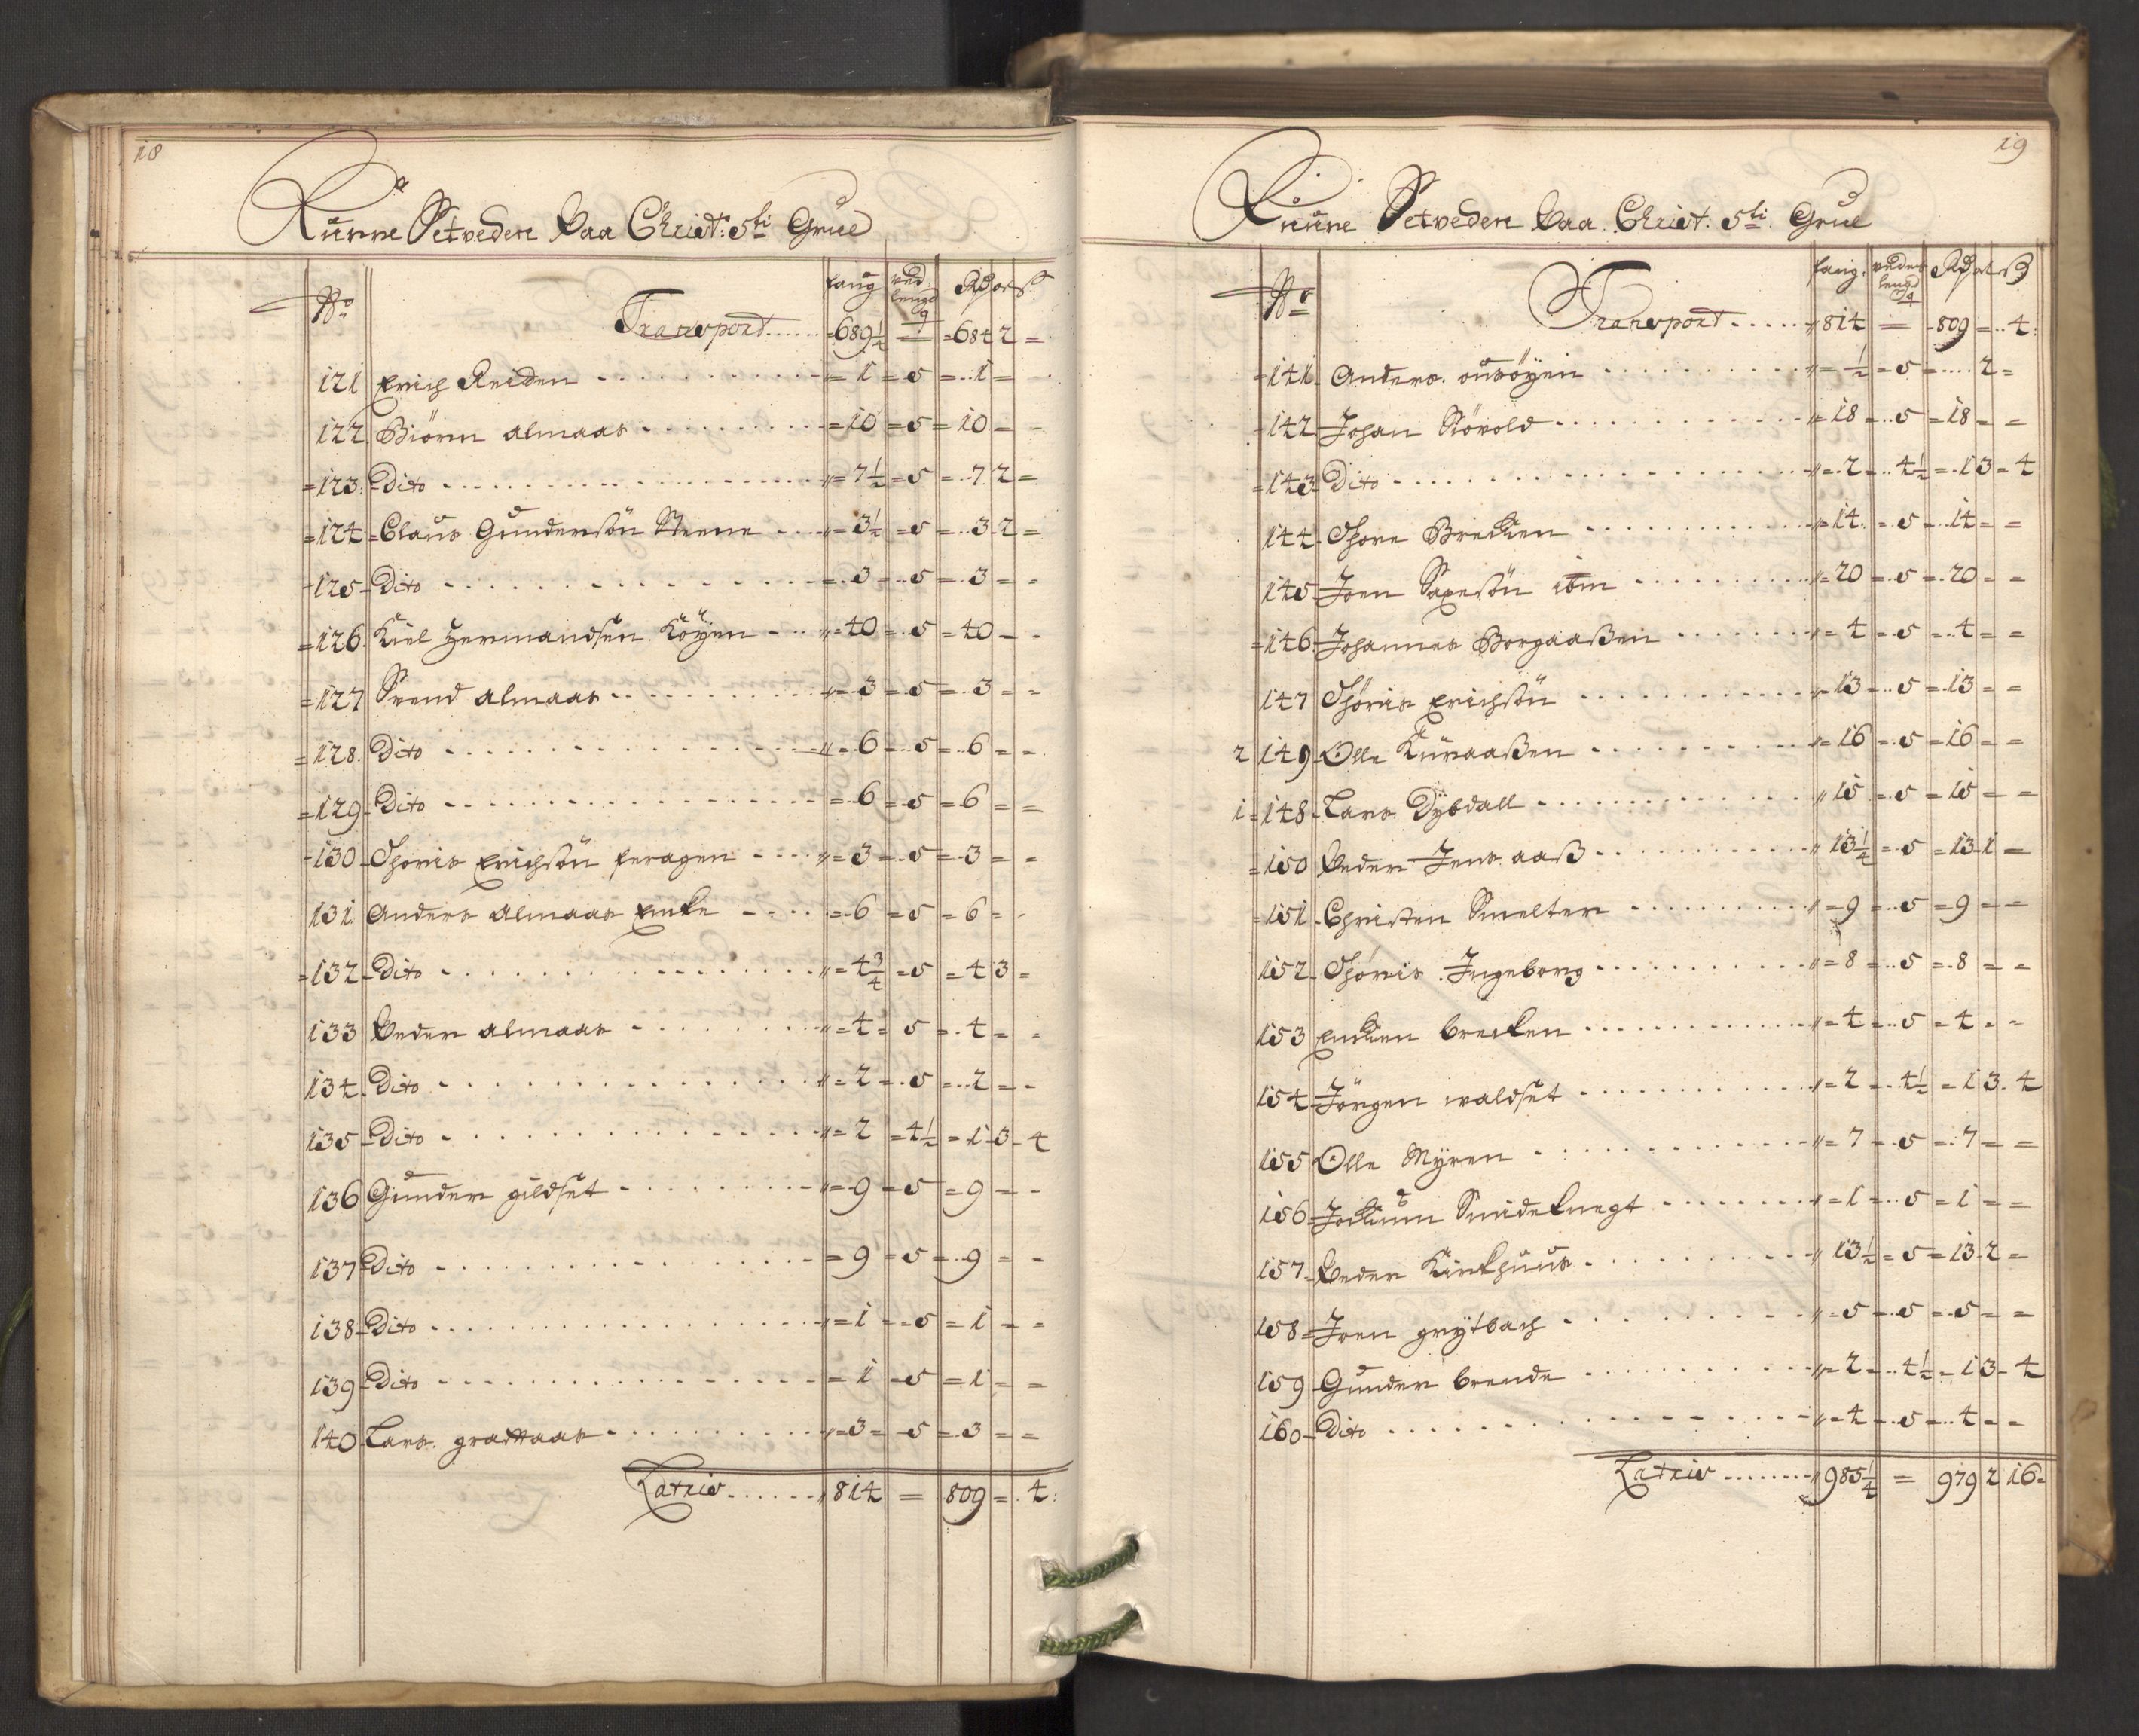 18
Kiørne Setveden Paa Christ: 5ti Grue
No faug ved lengd q Rdr ort ß
Transport ...... = 689 1/4 = = 684 2 =
121 Erich Reiden = 1 = 5 = 1 =
122 Biörn Almaas = 10 = 5 = 10 = =
= 123 = Dito = 7 1/2 = 5 = 7 2 =
= 124 = Claus Gundersön Steene = 3 1/2 = 5 = 3 2 =
125 = Dito = 3 = 5 = 3 = =
= 126 Kiel Hermandsen Köÿen = 40 = 5 = 40 = =
= 127 Svend Almaas = 3 = 5 = 3 = =
= 128 Dito = 6 = 5 = 6 = =
= 129 = Dito = 6 = 5 = 6 = =
130 = Thoris Erichsön feragen = 3 = 5 = 3 = =
131 Anders Almaas Encke = 6 = 5 = 6 = =
= 132 = Dito = 4 3/4 = 5 = 4 3 =
133 Peder Almaas = 4 = 5 = 4 = =
134 = Dito = 2 = 5 = 2 = =
135 = Dito = 2 = 4 1/2 = 1 3 = 4
136 Gunder gildset = 9 = 5 = 9 = =
137 = Dito = 9 = 5 = 9 = =
138 = Dito = 1 = 5 = 1 = =
139 = Dito = 1 = 5 = 1 = =
140 = Lars = 3 = 5 = 3 = =
Latris ...... 814 = 809 = 4:
19
Kiørne Setveden Paa Christ: 5ti Grue
No faug: veden lengd q Rdr ort ß
Transport ...... 814 = 809 = 4:
= 141 Anders ousöÿen = 1/2 = 5 = 2 =
= 142 = Johan Stövold = 18 = 5 = 18 = =
= 143 = Dito = 2 = 4 1/2 = 1 3 = 4
144 = Thore Brecken = 14 = 5 = 14 = =
145 = Joen Saxesön ibm = 20 = 5 = 20 = =
= 146 = Johannes Borgaaßen = 4 = 5 = 4 = =
147 Thöris Erichsön = 13 = 5 = 13 = =
2 149 = Olle Kuraaßen = 16 = 5 = 16 = =
1 = 148 = Lars Dÿbdall = 15 = 5 = 15 = =
= 150 Peder Jens aaß = 13 1/4 = 5 = 13 1 =
= 151 = Christen Smelter = 9 = 5 = 9 = =
152 = Thöris Ingeborg = 8 = 5 = 8 = =
153 Encken brecken = 4 = 5 = 4 = =
154 = Jörgen waldset = 2 = 4 1/2 = 1 3 = 4
155 Olle Mÿren = 7 = 5 = 7 = =
156 = Jochum Smideknegt = 1 = 5 = 1 = =
157 = Peder Kirkhuus = 13 1/2 = 5 = 13 2 =
158 = Joen grÿtbach = 5 = 5 = 5 = =
159 = Gunder brende = 2 = 4 1/2 = 1 3 = 4
160 = Dito = 4 = 5 = 4 = =
Latris ........ 985 1/4 = 979 2 16 =